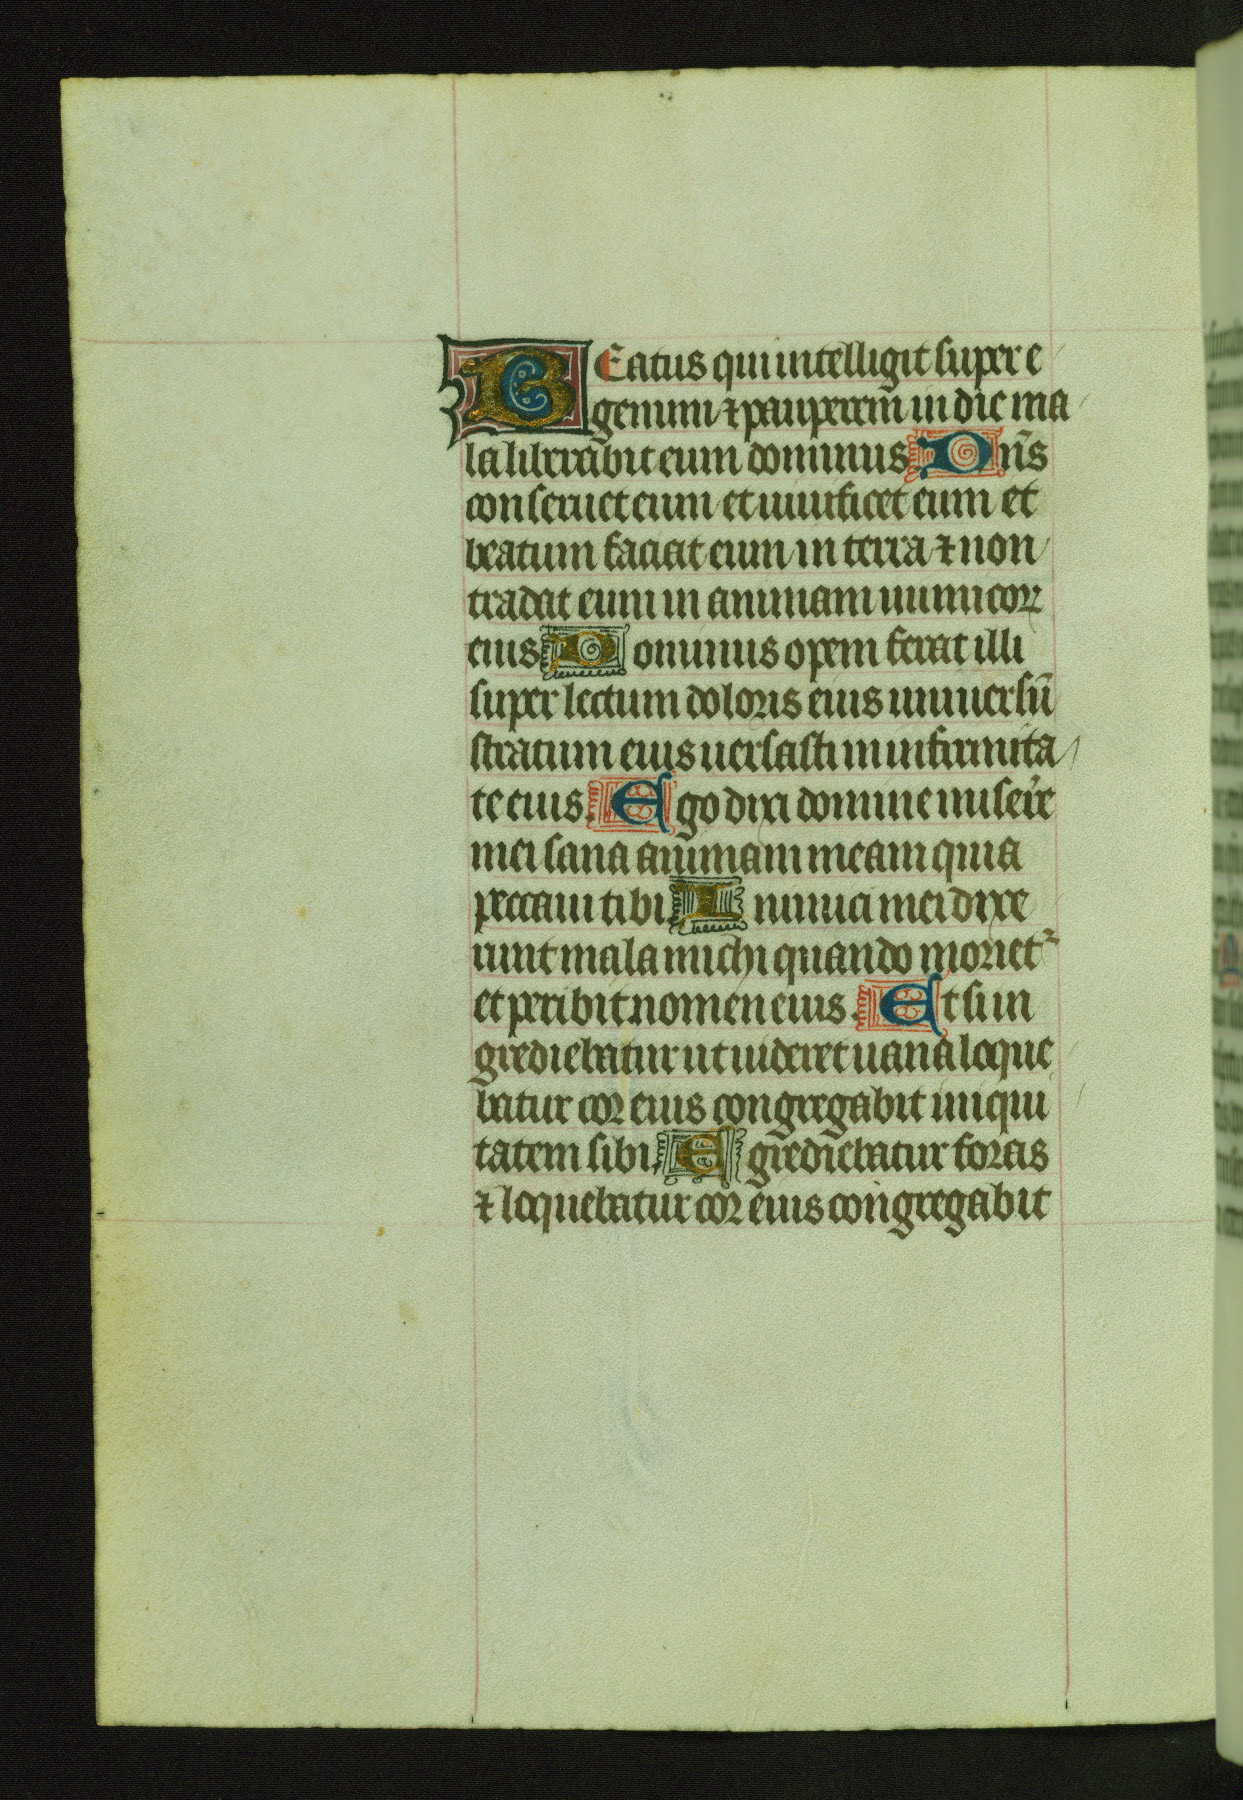 BEatus qui intelligit super e
genum ⁊ pauperem in die ma
la liberabit eum dominus. Dn̄s
conseruet eum et uiuificet eum et
beatum faciat eum in terra ⁊ non
tradat eum in animam inimicoꝝ
eius. Dominus opem ferat illi
super lectum doloris eius uniuersū
stratum eius uersasti in infirmita
te eius. Ego dixi domine miser̄e
mei sana animam meam quia
peccaui tibi. Inimici mei dixe
runt mala michi quando moriet᷑
et peribit nomen eius. Et si in
grediebatur ut uideret uana loque
batur cor eius congregabit iniqui
tatem sibi. Egrediebatur foras
⁊ loquebatur cor eius congregabit